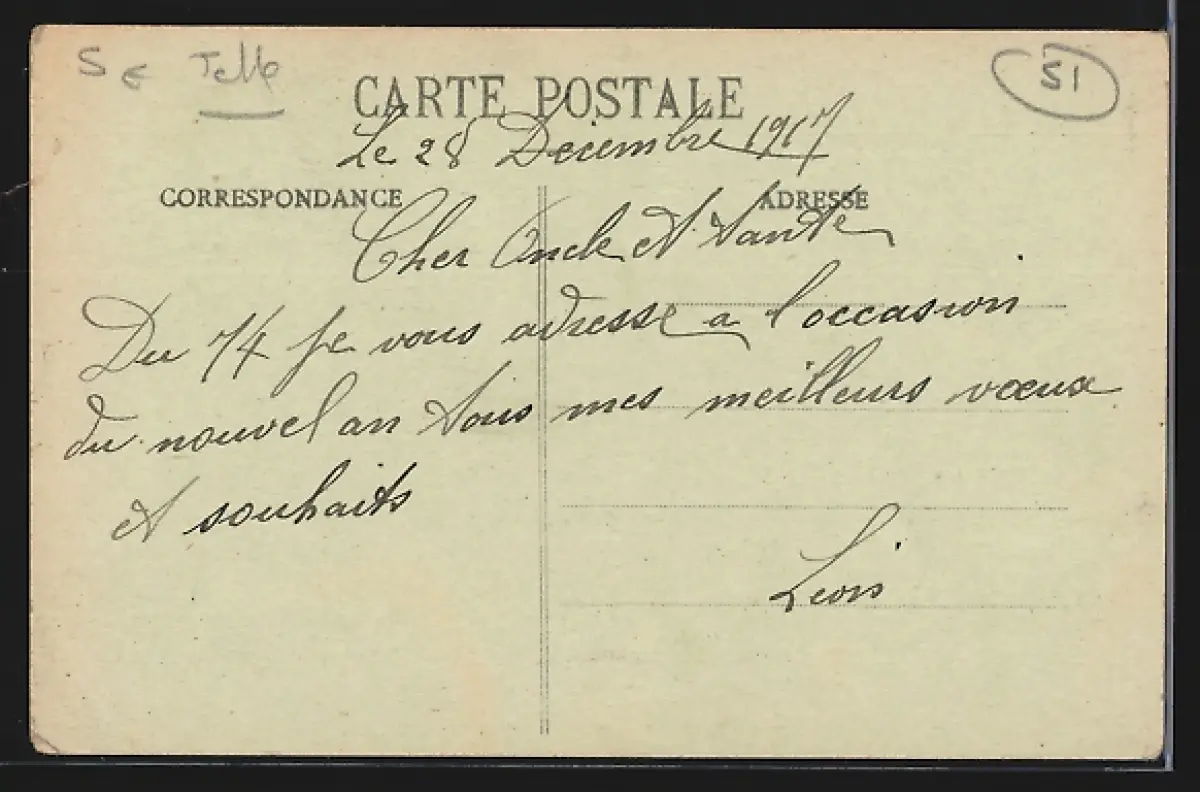 5 €
51
CARTE POSTALE
Le 28 Décembre 1917
CORRESPONDANCE
ADRESSE
Cher Oncle et tante
Du 74 je vous adresse a l'occasion
du nouvel an tous mes meilleurs vœux
et souhaits